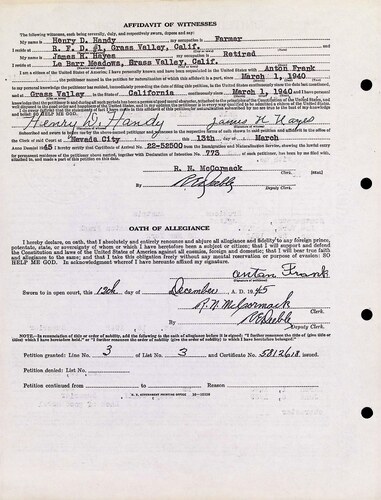 AFFIDAVIT OF WITNESSES
The following witnesses, each being severally, duly, and respectively sworn, depose and say:
My name is Henry D. Handy, my occupation is Farmer
I reside at R. F. D. #1, Grass Valley, Calif.
My name is James H. Hayes, my occupation is Retired
I reside at Le Barr Meadows, Grass Valley, Calif.
I am a citizen of the United States of America; I have personally known and have been acquainted in the United States with Anton Frank
, the petitioner named in the petition for naturalization of which this affidavit is a part, since March 1, 1940
to my personal knowledge the petitioner has resided, immediately preceding the date of filing this petition, in the United States continuously since the date last mentioned,
and at Grass Valley California continuously since March 1, 1940
SO HELP ME GOD.
Henry D. Handy James H. Hayes
Subscribed and sworn to before me by the above-named petitioner and witnesses in the respective forms of oath shown in said petition and affidavit in the office of
the Clerk of said Court at Nevada City this 13th day of March
Anno Domini 1945 I hereby certify that Certificate of Arrival No. 22-52500 from the Immigration and Naturalization Service, showing the lawful entry
for permanent residence of the petitioner above named, together with Declaration of Intention No. 775 of such petitioner, has been by me filed with,
attached to, and made a part of this petition on this date.
R. N. McCormack
Clerk. [SEAL]
By
Deputy Clerk.
OATH OF ALLEGIANCE
I hereby declare, on oath, that I absolutely and entirely renounce and abjure all allegiance and fidelity to any foreign prince,
potentate, state, or sovereignty of whom or which I have heretofore been a subject or citizen; that I will support and defend
the Constitution and laws of the United States of America against all enemies, foreign and domestic; that I will bear true faith
and allegiance to the same; and that I take this obligation freely without any mental reservation or purpose of evasion: SO
HELP ME GOD. In acknowledgment whereof I have hereunto affixed my signature.
Anton Frank
Sworn to in open court, this 12th day of December, A. D. 1945
R. N. McCormack
Clerk.
By
Deputy Clerk.
NOTE.—In renunciation of title or order of nobility, add the following to the oath of allegiance before it is signed: "I further renounce the title of (give title or
titles) which I have heretofore held," or "I further renounce the order of nobility (give the order of nobility) to which I have heretofore belonged."
Petition granted: Line No. 3 of List No. 3 and Certificate No. 5812618 issued.
Petition denied: List No.
Petition continued from to Reason
U. S. GOVERNMENT PRINTING OFFICE